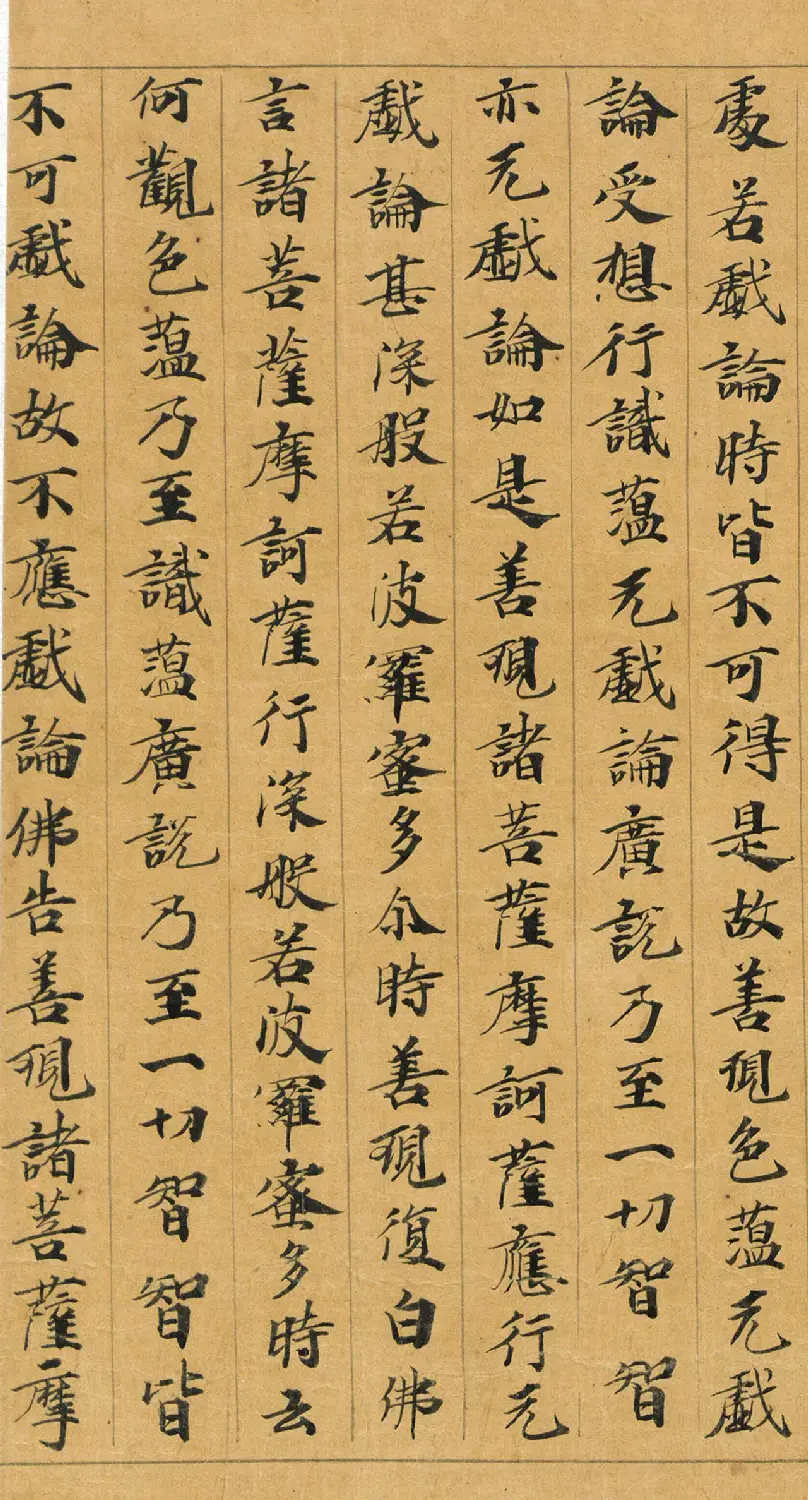 處若戲論時皆不可得是故善現色蘊无戲
論受想行識蘊无戲論廣說乃至一切智智
亦无戲論如是善現諸菩薩摩訶薩應行无
戲論甚深般若波羅蜜多尒時善現復白佛
言諸菩薩摩訶薩行深般若波羅蜜多時云
何觀色蘊乃至識蘊廣說乃至一切智智皆
不可戲論故不應戲論佛告善現諸菩薩摩